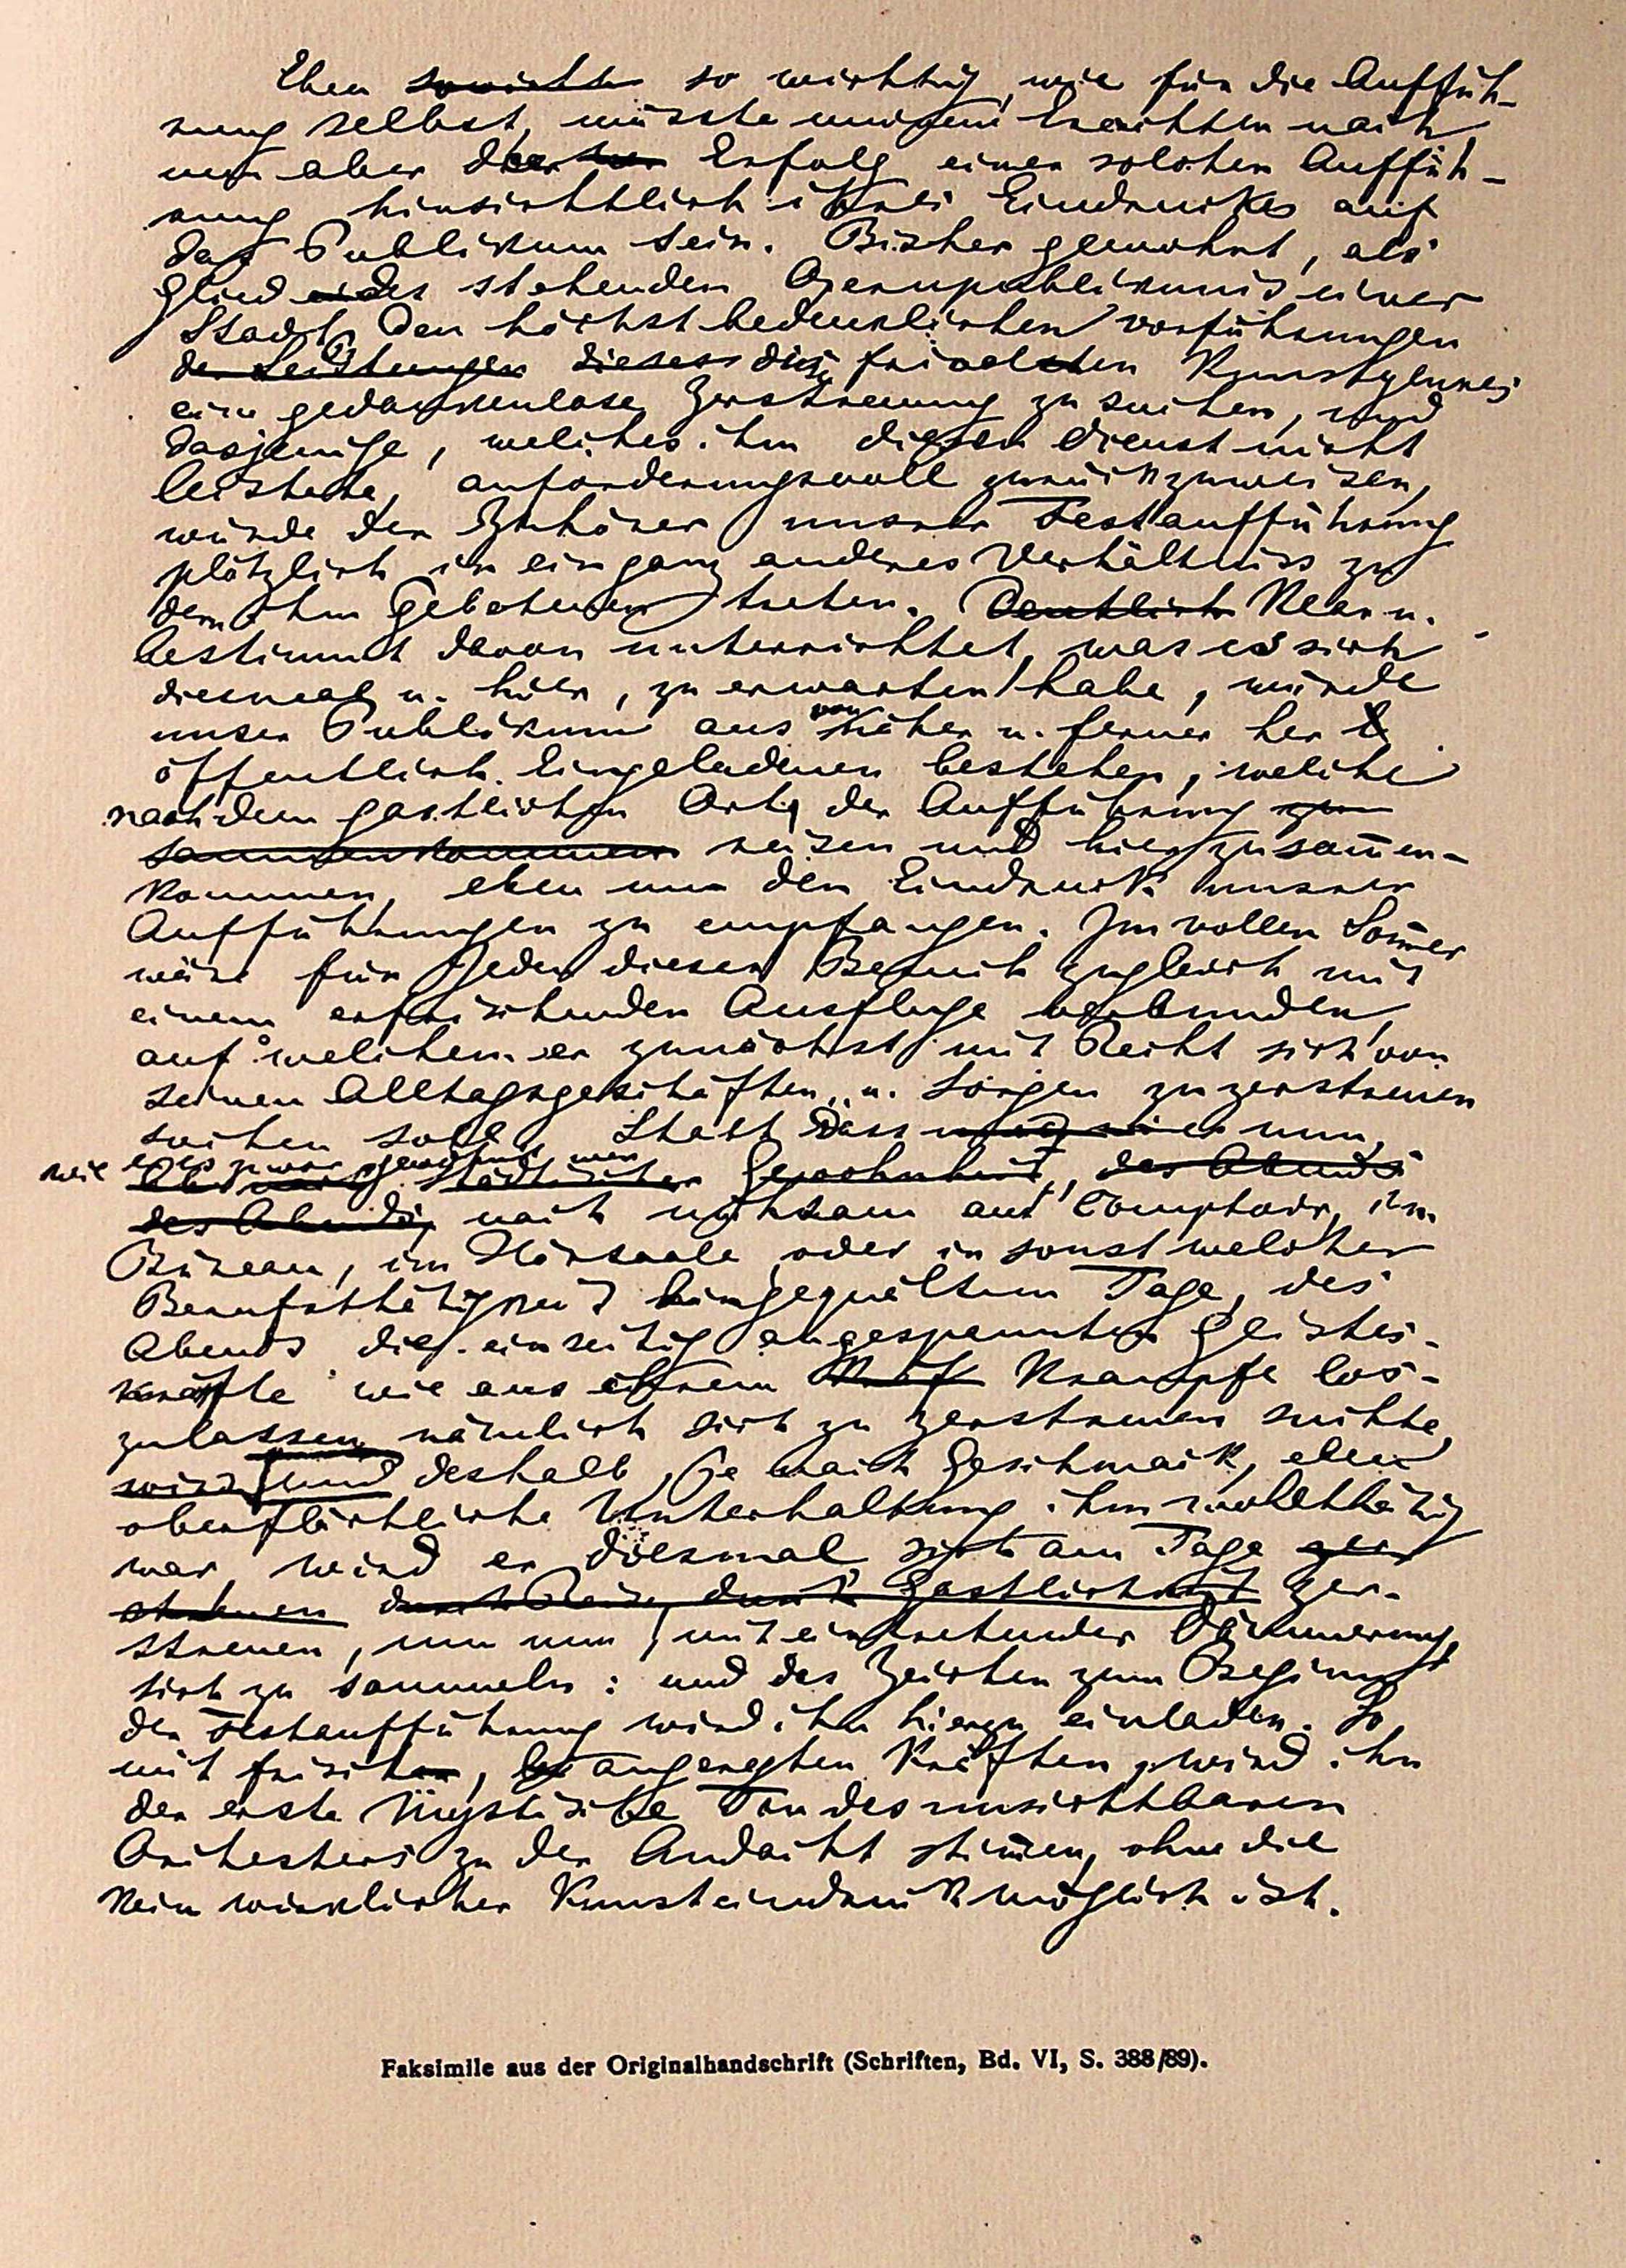 Eben so wichtig, wie für die Auffüh-
rung selbst, müsste meinem Erachten nach
nun aber der Erfolg einer solchen Auffüh-
rung hinsichtlich ihres Eindruckes auf
das Publikum sein. Bisher gewohnt, als
Glied des stehenden Opernpublikum's einer
Stadt in den höchst bedenklichen Vorführungen
der Leistungen dieses frivolen Kunstgenres
eine gedankenlose Zerstreuung zu suchen, und
dasjenige, welches ihm diesen Dienst nicht
leistete, anforderungsvoll zurückzuweisen,
würde der Zuhörer unsrer Festaufführung
plötzlich in ein ganz anderes Verhältniss zu
dem ihm Gebotenen treten. Deutlich Klar u.
bestimmt davon unterrichtet, was es sich
diesmal u. hier, zu erwarten habe, würde
unser Publikum aus von näher u. ferner her
öffentlich Eingeladenen bestehen, welche
nach dem gastlichen Orte der Aufführung zu
sammenkommen reisen und hier zusam̄en-
kommen, eben um den Eindruck unsrer
Aufführungen zu empfangen. Im vollen Som̄er
wäre für Jeden dieser Besuch zugleich mit
einem erfrischenden Ausfluge verbunden,
auf welchem er zunächst mit Recht sich von
seinen Alltagsgeschäften u. Sorgen zu zerstreuen
suchen soll. Statt dass er nun,
wie er es zwar gewohnt war städtischer Gewohnheit, des Abends
des Abends, nach mühsam am Comptoir, im
Büreau, im Hörsaale oder in sonst welcher
Berufsthätigkeit hingequältem Tage, des
Abends die einseitig angespannten Geistes-
kräfte wie aus ihrem Krampfe los-
zulassen, nämlich sich zu zerstreuen suchte,
und deshalb, je nach Geschmack, eben
oberflächliche Unterhaltung ihm wohlthätig
war, wird er diesmal sich am Tage zer-
streuen, um nun, mit eintretender Dämmerung,
sich zu sammeln: und das Zeichen zum Beginn
der Festaufführung wird ihn hierzu einladen. So,
mit frischen, angeregten Kräften, wird ihn
der erste mystische Ton des unsichtbaren
Orchesters zu der Andacht stim̄en, ohne die
kein wirklicher Kunsteindruck möglich ist.
Faksimile aus der Originalhandschrift (Schriften, Bd. VI, S. 388/89).